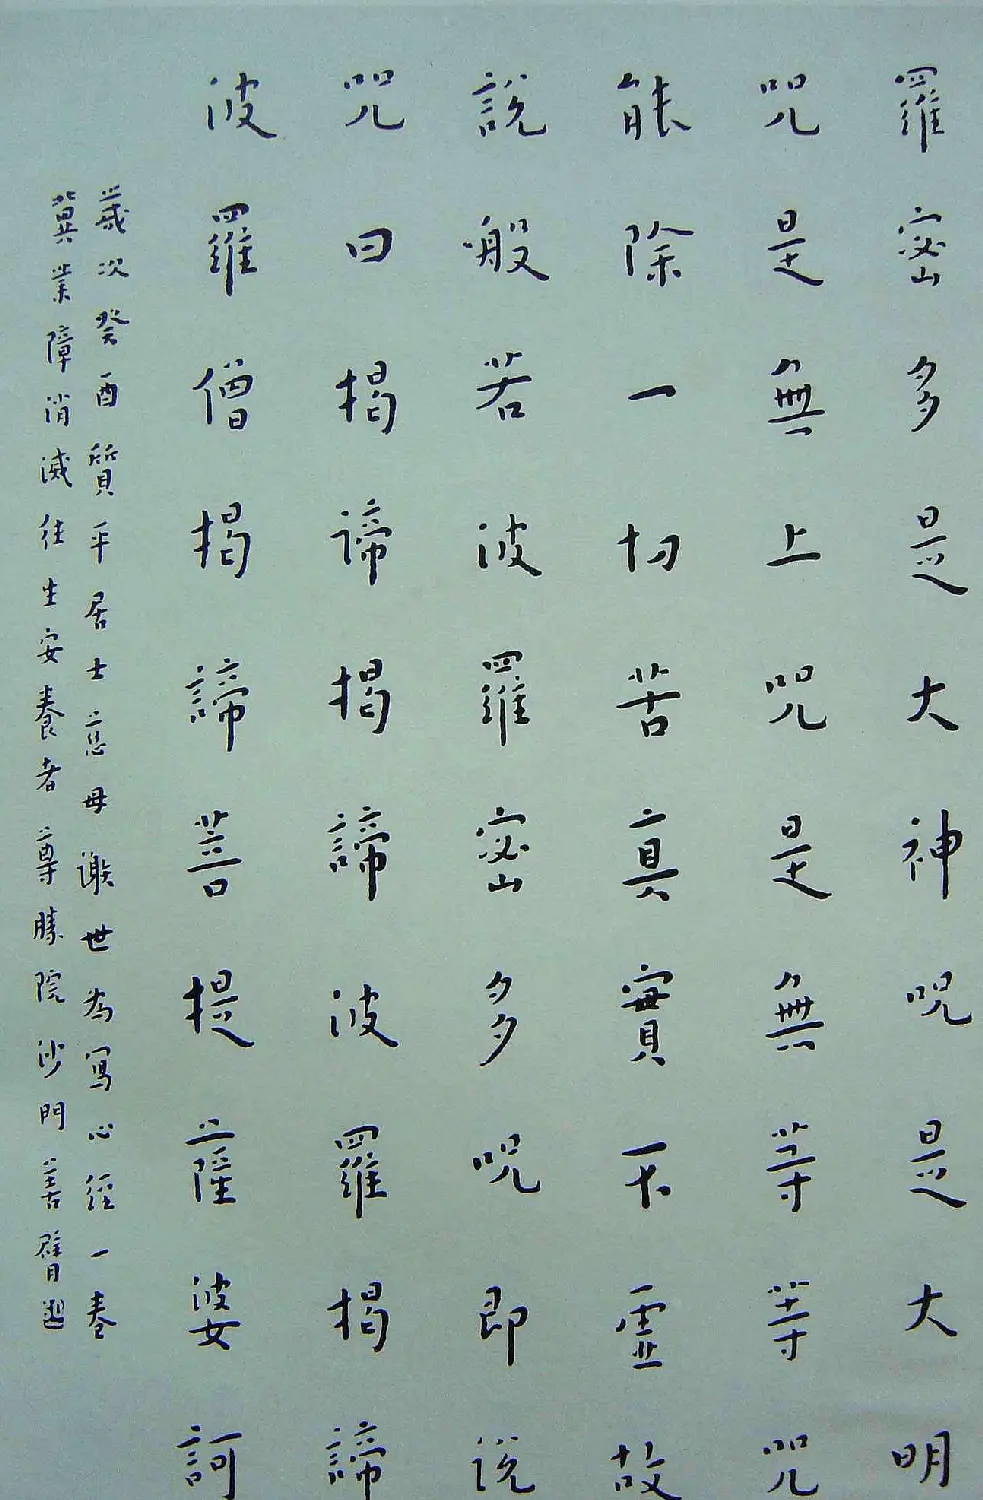 羅密多是大神咒是大明
咒是無上咒是無等等咒
能除一切苦真實不虛故
說般若波羅密多咒即說
咒曰揭諦揭諦波羅揭諦
波羅僧揭諦菩提薩婆訶
歲次癸酉質平居士慈母謝世為寫心經一卷
冀業障消滅往生安養者尊勝院沙門善臂